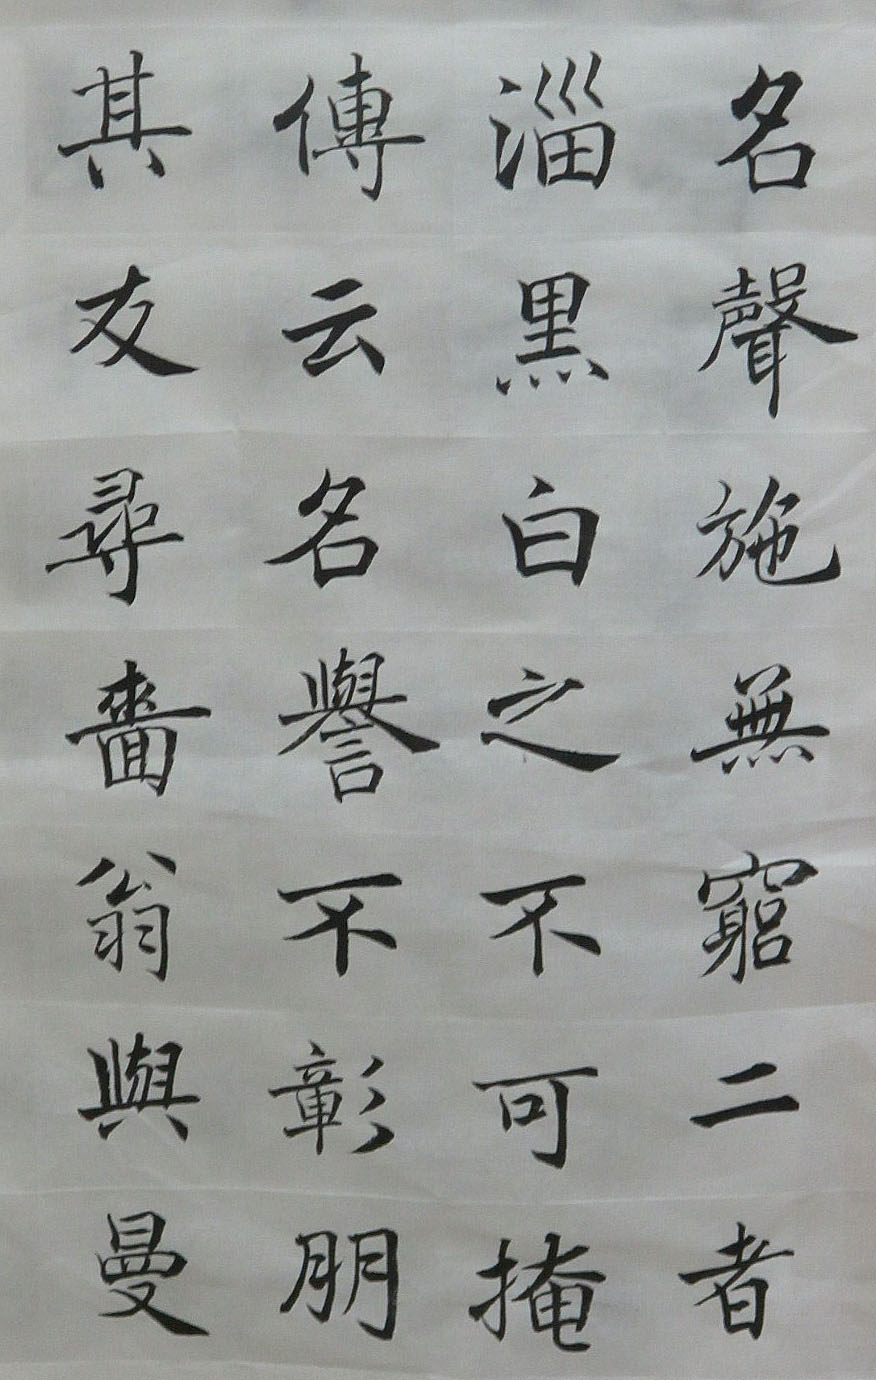 名聲施無窮二者
淄黑白之不可掩
傳云名譽不彰朋
其友尋嗇翁與曼